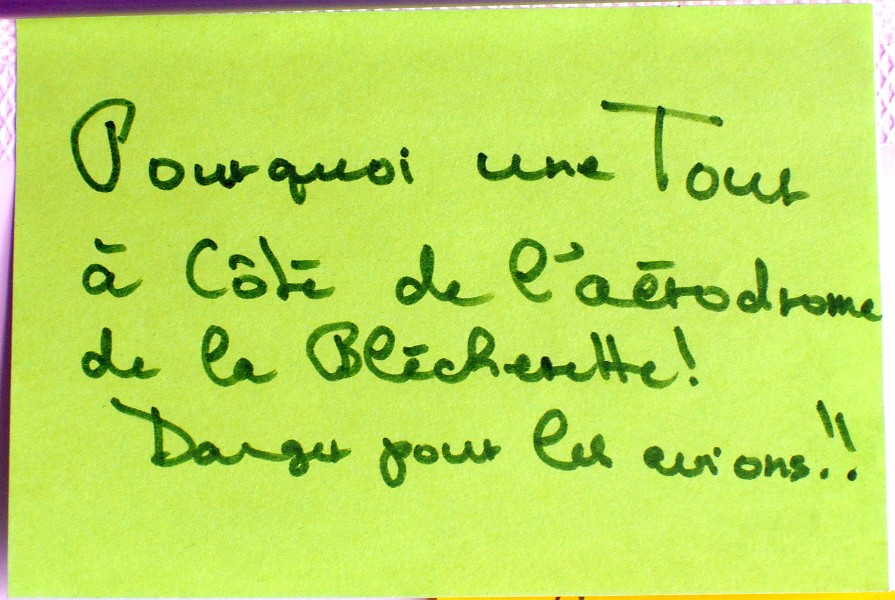 Pourquoi une Tour
à Côté de l'aérodrome
de la Blécherette!
Danger pour les avions!!